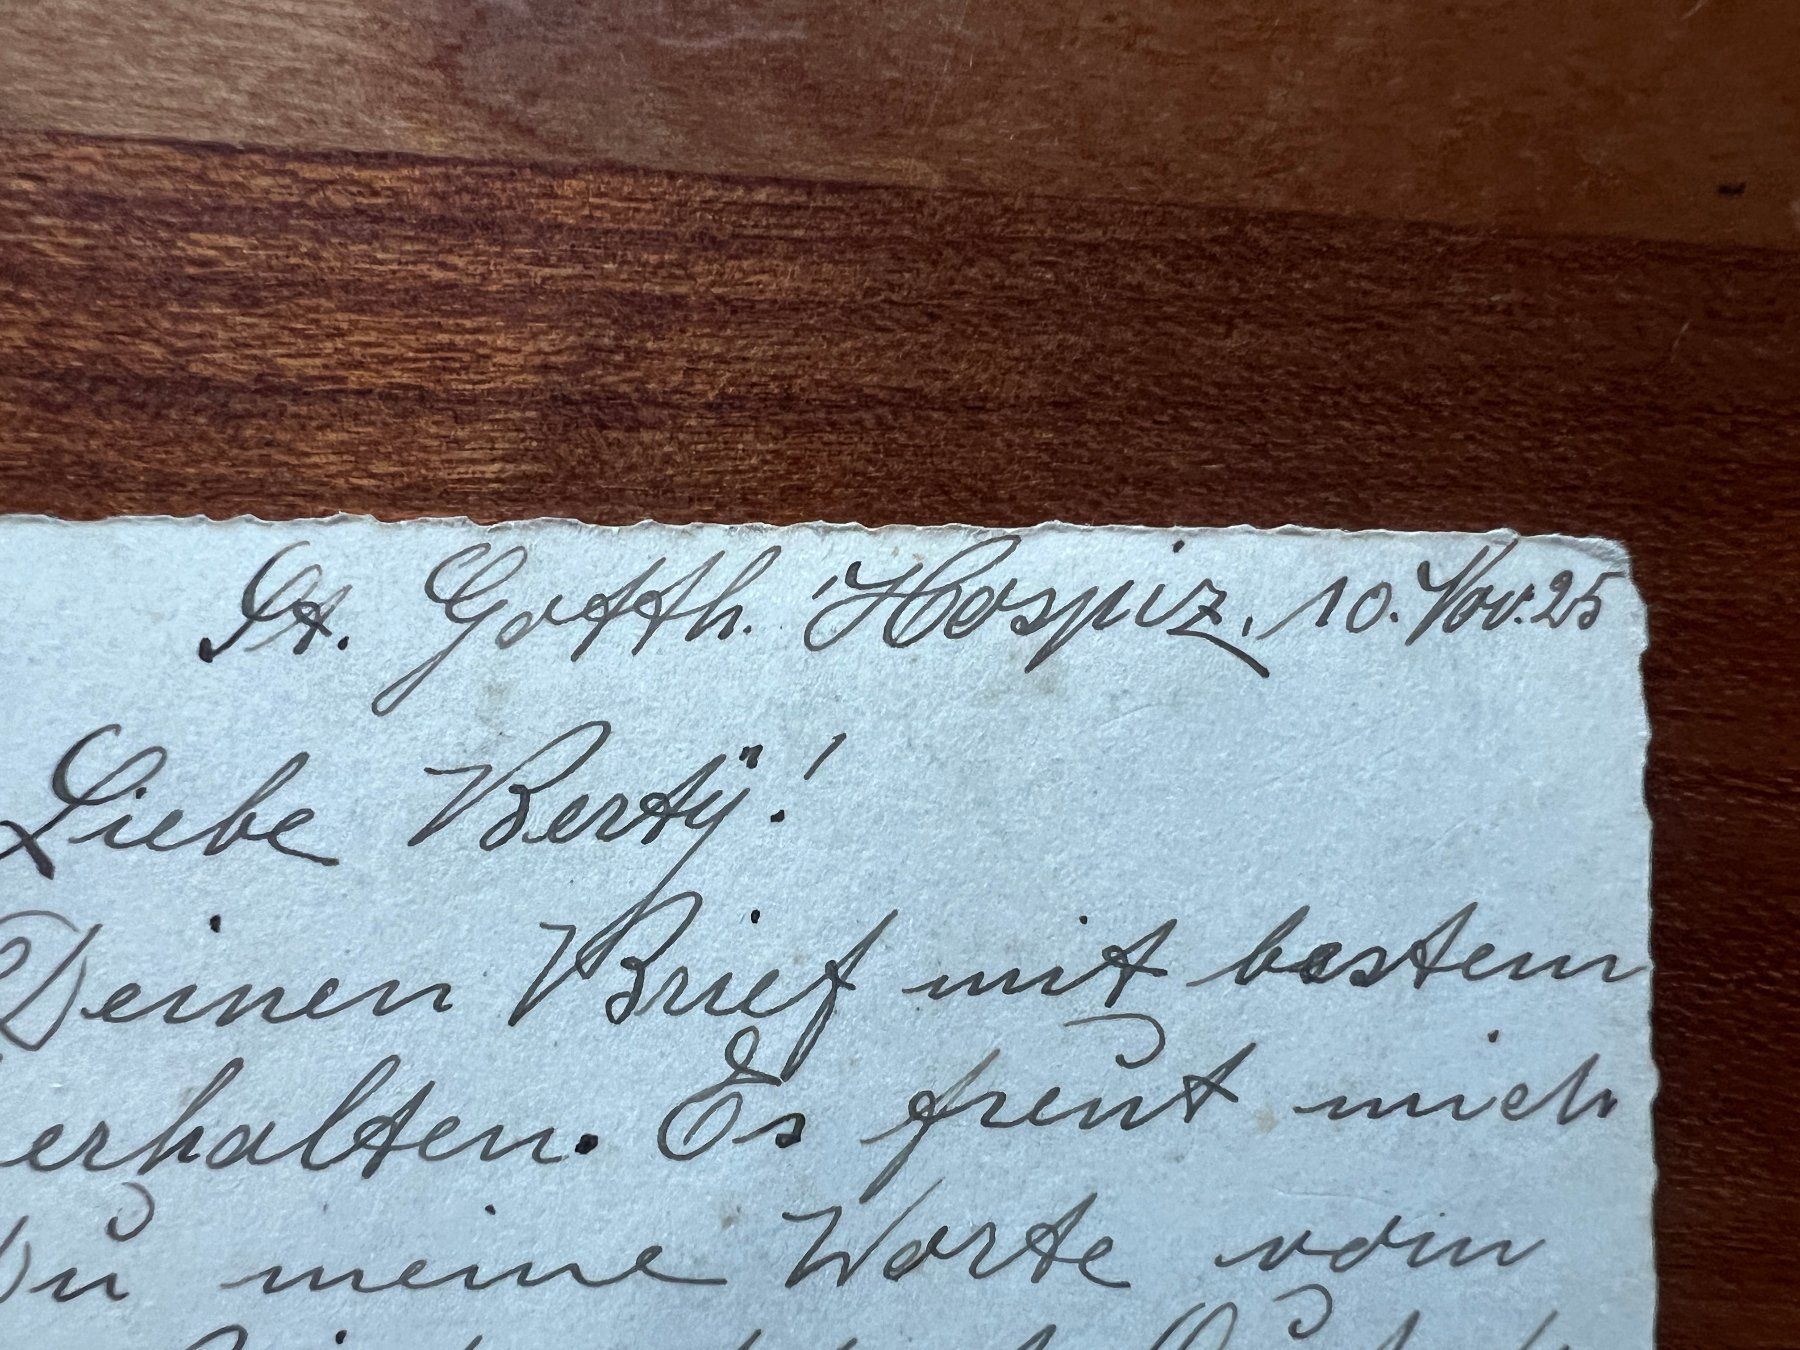 St. Gotth. Hospiz, 10. Nov. 25
Liebe Bertÿ!
Deinen Brief mit bestem
erhalten. Es freut mich
Du meine Worte vom